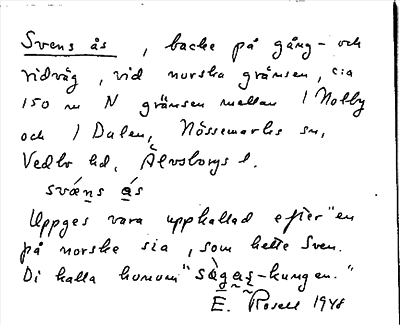 Svens ås, backe på gång- och
ridväg, vid norska gränsen, c:a
150 m N gränsen mellan 1 Nolby
och 1 Dalen, Nössemarks sn,
Vedbo hd, Älvsborgs l.
svæ̀ns ås
Uppges vara uppkallad efter "en
på norske sia, som hette Sven.
Di kalla honom" sàgas-kungen."
E. Rosell 1948